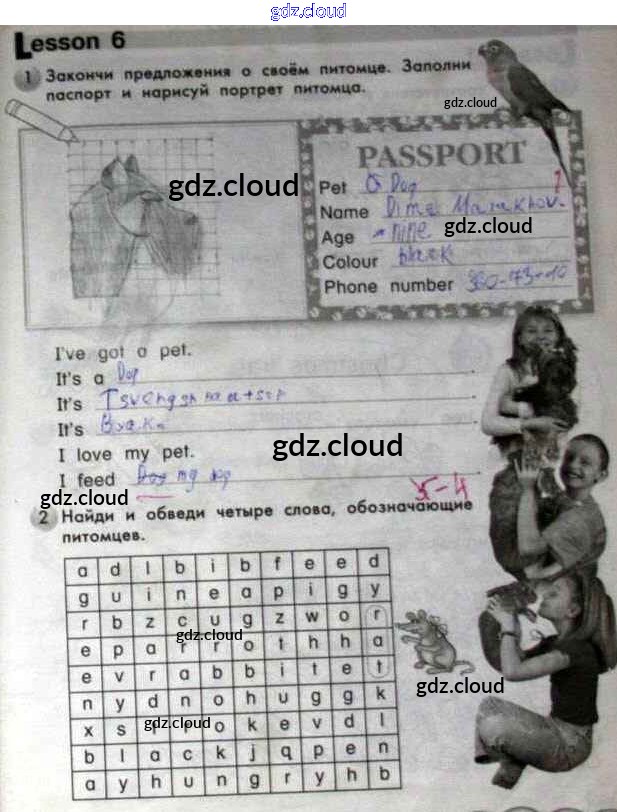 gdz.cloud
Lesson 6
1 Закончи предложения о своём питомце. Заполни
паспорт и нарисуй портрет питомца.
gdz.cloud
PASSPORT
gdz.cloud
Pet a Dog
Name Dima
gdz.cloud
Age nine
Colour black
Phone number
I've got a pet.
It's a Dog
It's
It's
gdz.cloud
I love my pet.
I feed my dog
gdz.cloud
5-4
2 Найди и обведи четыре слова, обозначающие
питомцев.
a d l b i b f e e d
g u i n e a p i g y
r b z c u g z w o r
gdz.cloud
e p a r r o t h h a
e v r a b b i t e t
gdz.cloud
n y d n o h u g g k
x s i r o k e v d l
gdz.cloud
b l a c k j q p e n
a y h u n g r y h b